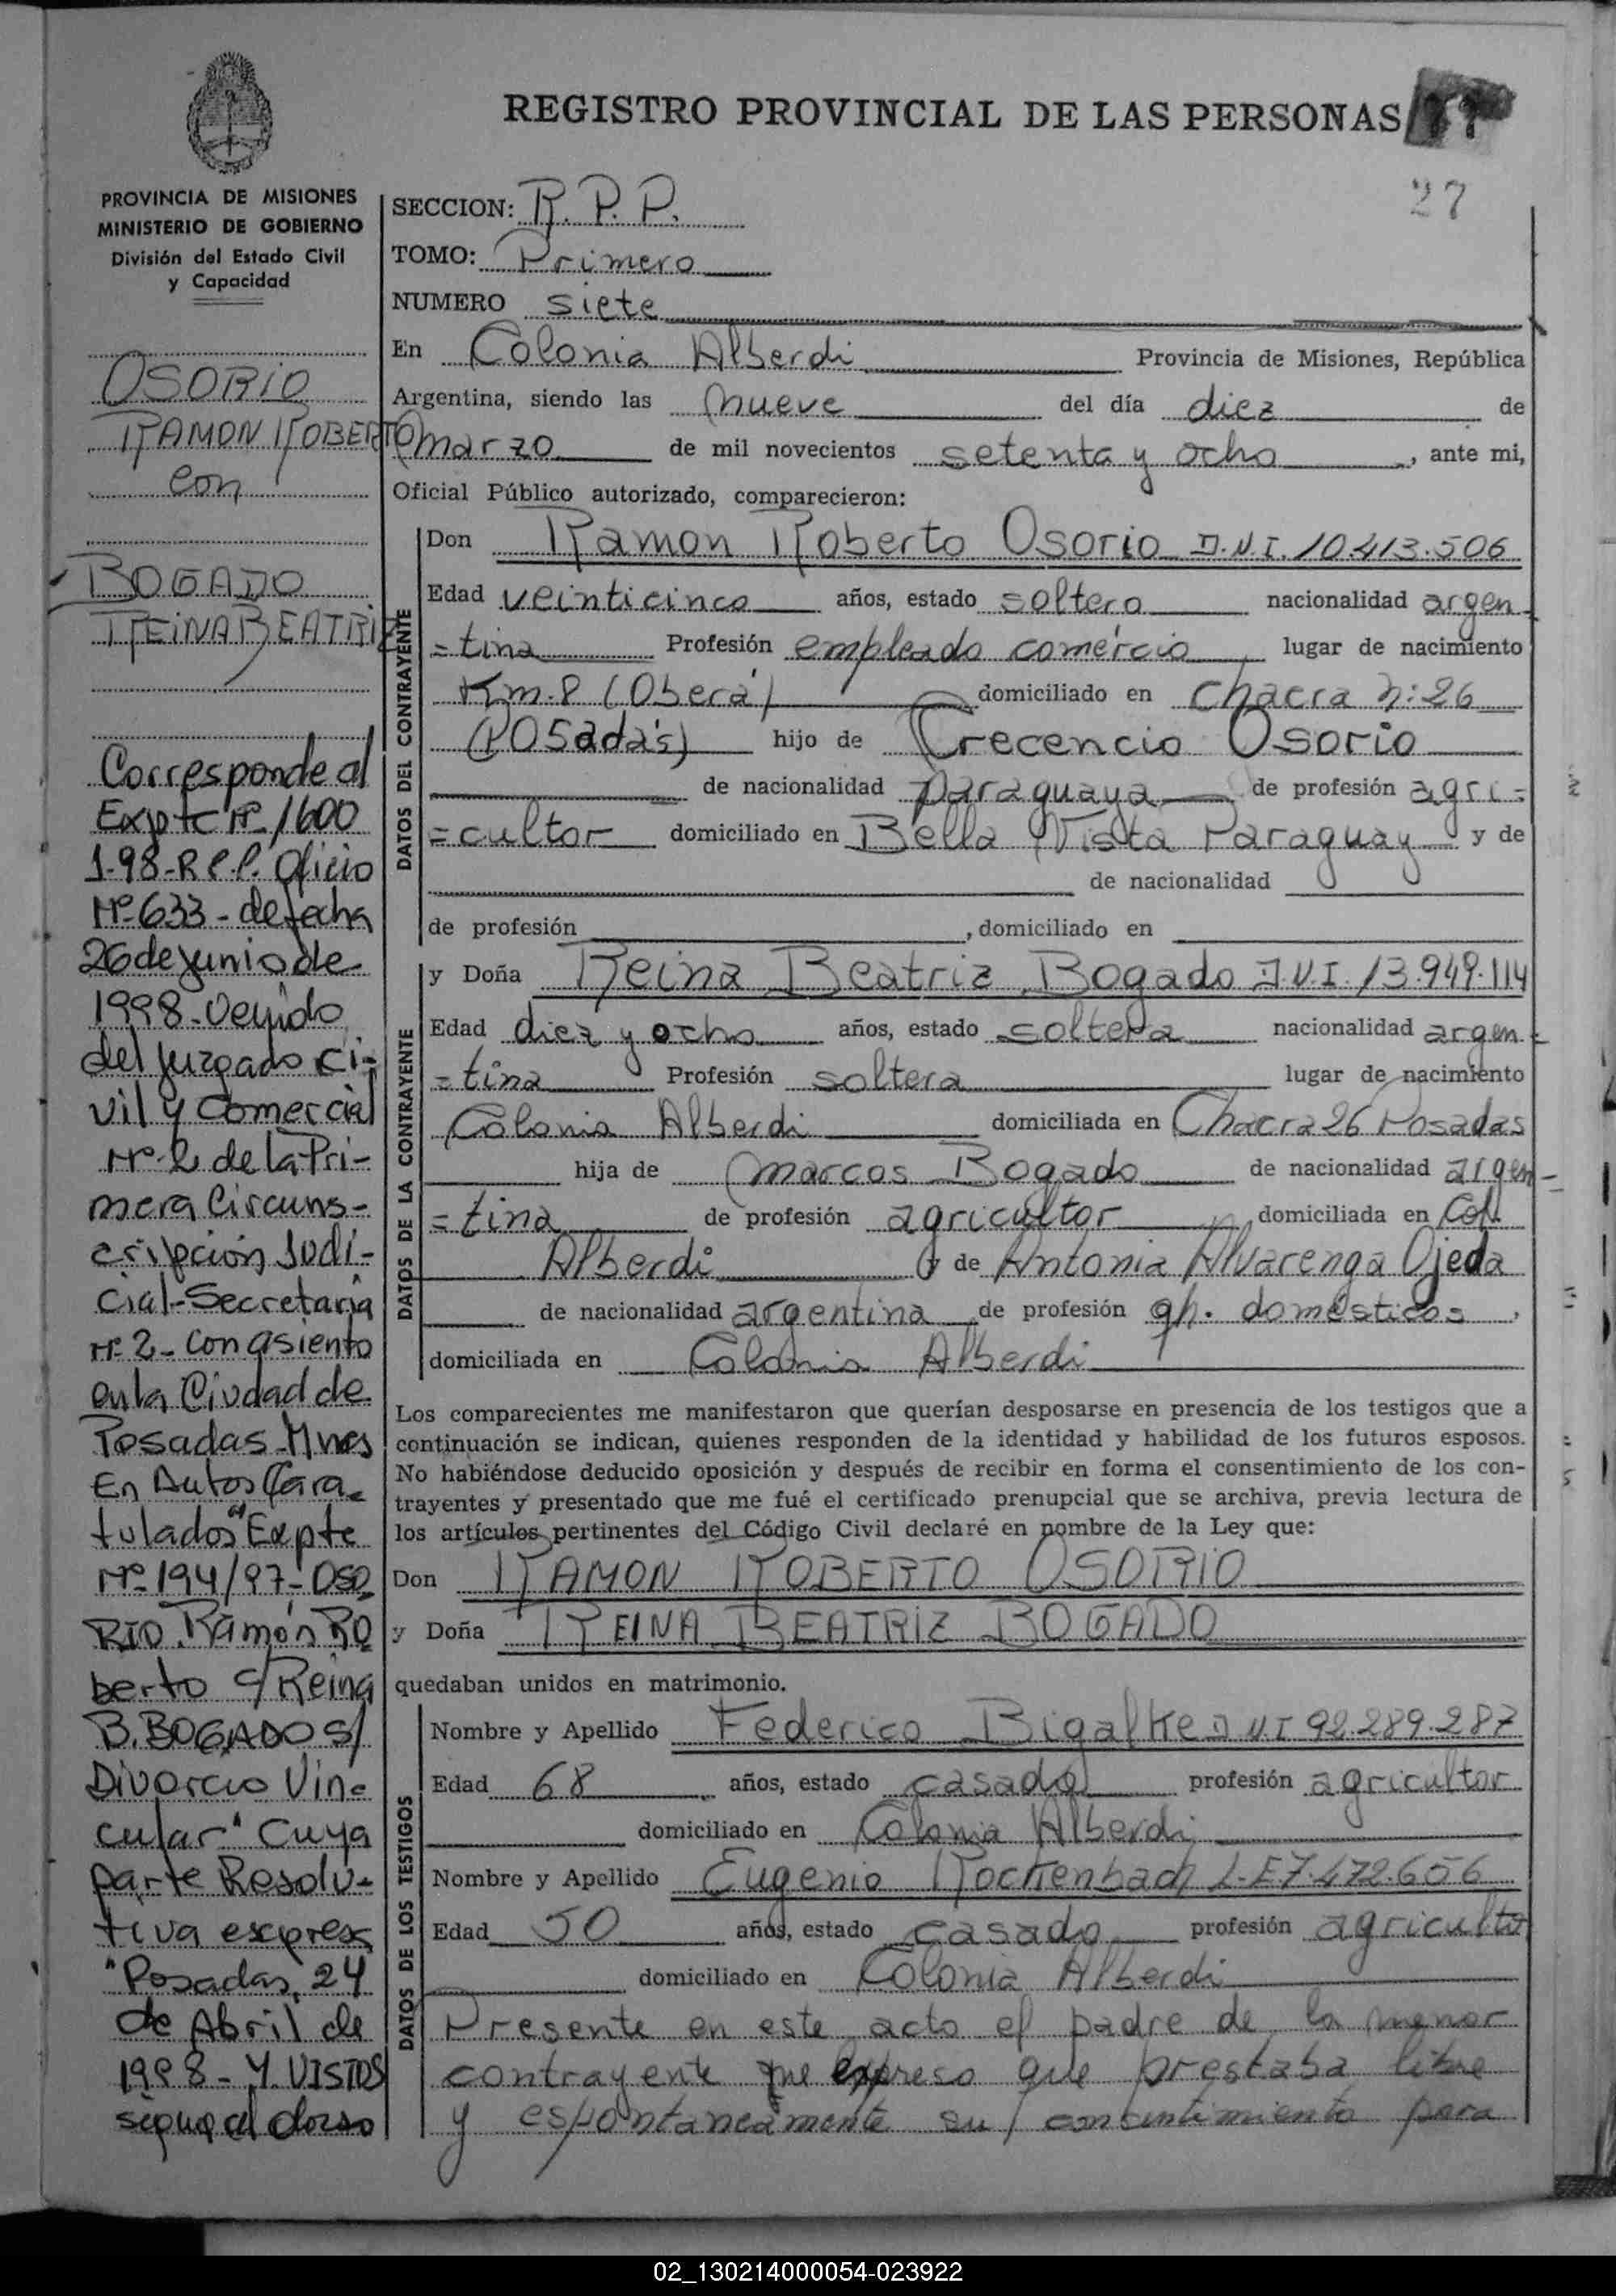 REGISTRO PROVINCIAL DE LAS PERSONAS
27
PROVINCIA DE MISIONES
MINISTERIO DE GOBIERNO
División del Estado Civil
y Capacidad
OSORIO
RAMON ROBERTO
con
BOGADO
REINA BEATRIZ
Corresponde al
Expte Nº 1600
1-98-R.P.P. Oficio
Nº 633 - de fecha
26 de junio de
1998 - Venido
del Juzgado Ci-
vil y Comercial
Nº 2 de la Pri-
mera Circuns-
cripción Judi-
cial - Secretaria
Nº 2 - con asiento
en la Ciudad de
Posadas Mnes
En Autos Cara-
tulados "Expte
Nº 194/97 - OSO
RIO Ramón RO
berto c/ Reina
B. BOGADO S/
Divorcio Vin-
cular" Cuya
parte Resolu-
tiva expres
"Posadas, 24
de Abril de
1998 - Y VISTOS
sigue al dorso
SECCION: R.P.P.
TOMO: Primero
NUMERO siete
En Colonia Alberdi Provincia de Misiones, República
Argentina, siendo las nueve del día diez de
marzo de mil novecientos setenta y ocho, ante mi,
Oficial Público autorizado, comparecieron:
DATOS DEL CONTRAYENTE
Don Ramon Roberto Osorio D.N.I. 10.413.506
Edad veinticinco años, estado soltero nacionalidad argen-
=tina Profesión empleado comercio, lugar de nacimiento
Km. 8 (Oberá) domiciliado en chacra n: 26
(Posadas) hijo de Crecencio Osorio
de nacionalidad paraguaya de profesión agri=
=cultor domiciliado en Bella Vista Paraguay y de
de nacionalidad
de profesión , domiciliado en
DATOS DE LA CONTRAYENTE
y Doña Reina Beatriz Bogado D.N.I. 13.949.114
Edad diez y ocho años, estado soltera nacionalidad argen=
=tina Profesión soltera lugar de nacimiento
Colonia Alberdi domiciliada en Chacra 26 Posadas
hija de Marcos Bogado de nacionalidad argen=
=tina de profesión agricultor, domiciliada en Col.
Alberdi y de Antonia Alvarenga Ojeda
de nacionalidad argentina de profesión qh. domésticos,
domiciliada en Colonia Alberdi
Los comparecientes me manifestaron que querían desposarse en presencia de los testigos que a
continuación se indican, quienes responden de la identidad y habilidad de los futuros esposos.
No habiéndose deducido oposición y después de recibir en forma el consentimiento de los con-
trayentes y presentado que me fué el certificado prenupcial que se archiva, previa lectura de
los artículos pertinentes del Código Civil declaré en nombre de la Ley que:
Don RAMON ROBERTO OSORIO
y Doña REINA BEATRIZ BOGADO
quedaban unidos en matrimonio.
DATOS DE LOS TESTIGOS
Nombre y Apellido Federico Bigalke D.N.I 92.289.287
Edad 68 años, estado casado profesión agricultor
domiciliado en Colonia Alberdi
Nombre y Apellido Eugenio Rockenbach L.E 7.472.656
Edad 50 años, estado casado profesión agricultor
domiciliado en Colonia Alberdi
Presente en este acto el padre de la menor
contrayente que expreso que prestaba libre
y espontaneamente su consentimiento para
02_130214000054-023922